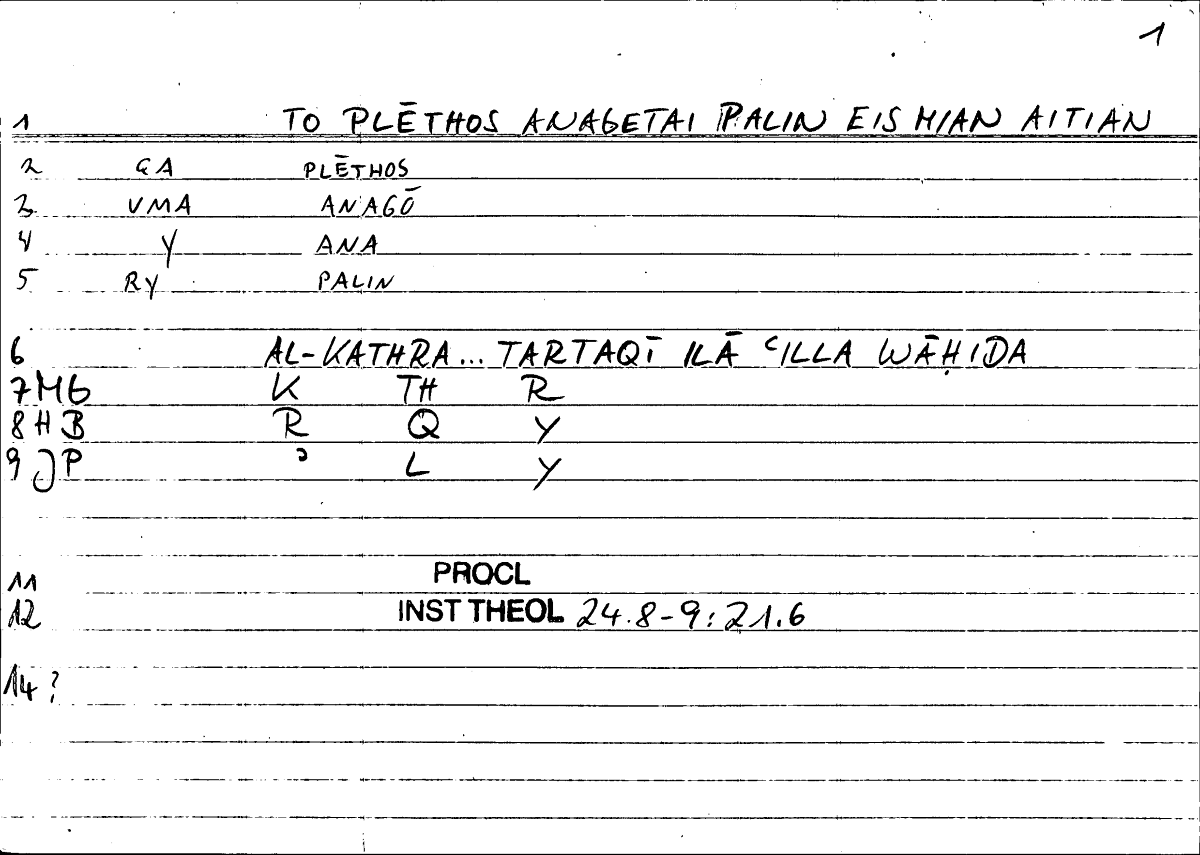 1
1 TO PLĒTHOS ANAGETAI PALIN EIS MIAN AITIAN
2 GA PLĒTHOS
3 VMA ANAGŌ
4 Y ANA
5 RY PALIN
6 AL-KATHRA... TARTAQĪ ILĀ ʿILLA WĀḤIDA
7 MG K TH R
8 HB R Q Y
9 JP ʾ L Y
11 PROCL
12 INST THEOL 24.8-9:21.6
14?